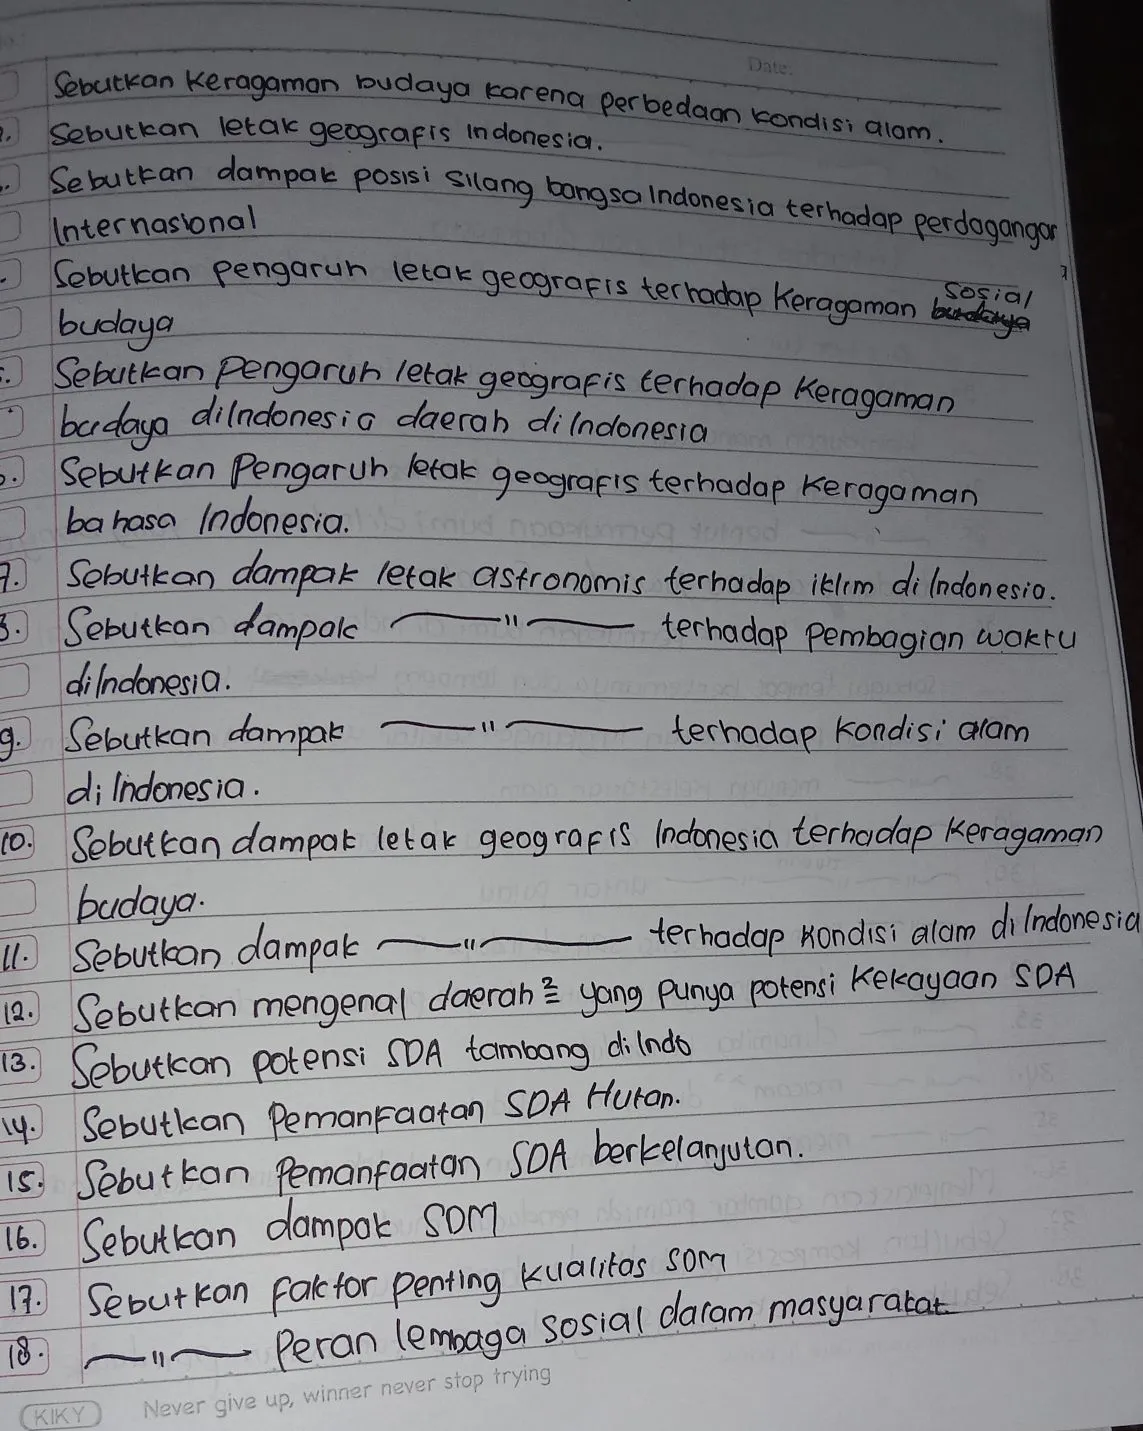 Date.
Sebutkan Keragaman budaya karena perbedaan kondisi alam.
Sebutkan letak geografis Indonesia.
Sebutkan dampak posisi silang bangsa Indonesia terhadap perdagangan
Internasional
Sebutkan pengaruh letak geografis terhadap Keragaman sosial
budaya
Sebutkan Pengaruh letak geografis terhadap Keragaman
budaya diIndonesia daerah diIndonesia
Sebutkan Pengaruh letak geografis terhadap Keragaman
bahasa Indonesia.
7. Sebutkan dampak letak astronomis terhadap iklim diIndonesia.
8. Sebutkan dampak —"— terhadap Pembagian waktu
diIndonesia.
9. Sebutkan dampak —"— terhadap Kondisi alam
diIndonesia.
10. Sebutkan dampak letak geografis Indonesia terhadap Keragaman
budaya.
11. Sebutkan dampak —"— terhadap Kondisi alam diIndonesia
12. Sebutkan mengenal daerah² yang punya potensi Kekayaan SDA
13. Sebutkan potensi SDA tambang diIndo
14. Sebutkan Pemanfaatan SDA Hutan.
15. Sebutkan Pemanfaatan SDA berkelanjutan.
16. Sebutkan dampak SDM
17. Sebutkan faktor penting Kualitas SDM
18. —"— Peran lembaga sosial dalam masyarakat
KIKY Never give up, winner never stop trying